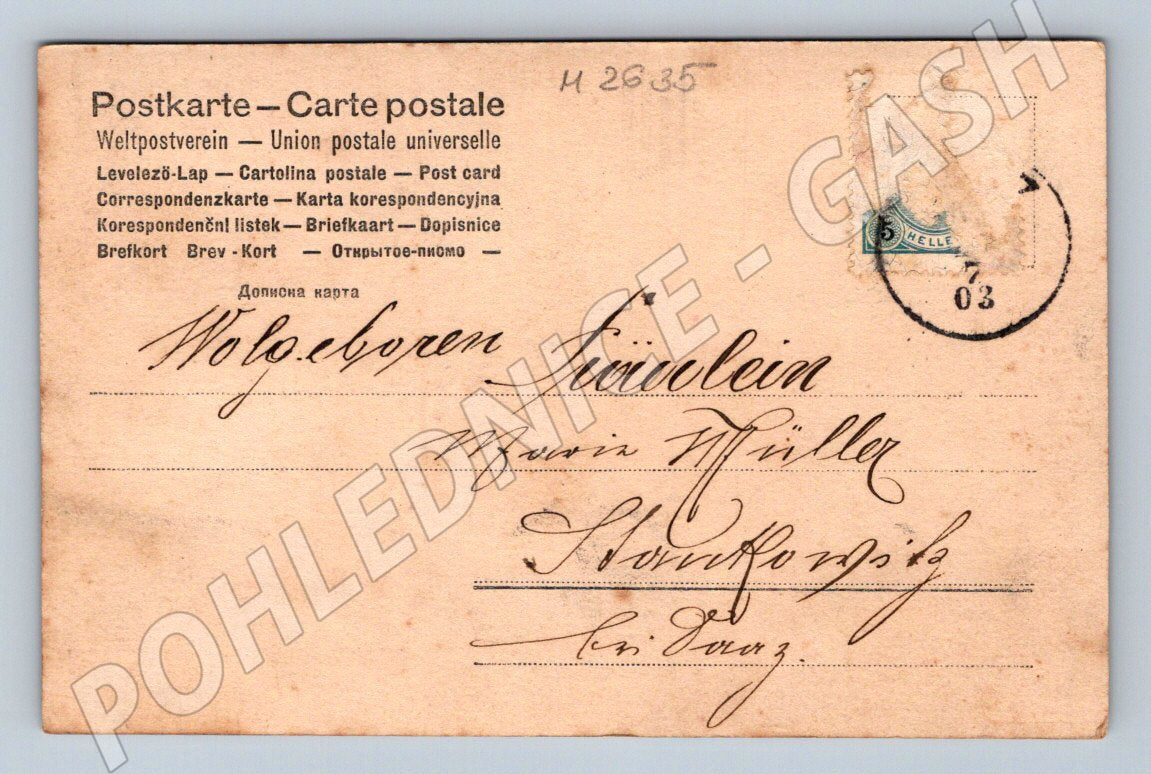 M 2635
Postkarte — Carte postale
Weltpostverein — Union postale universelle
Levelező-Lap — Cartolina postale — Post card
Correspondenzkarte — Karta korespondencyjna
Korespondenční lístek — Briefkaart — Dopisnice
Brefkort Brev-Kort — Открытое-письмо —
Дописна карта
5 HELLE
7
03
Wolgeboren Fräulein
Marie Müller
Stankowitz
bei Saaz.
POHLEDNICE - GASH